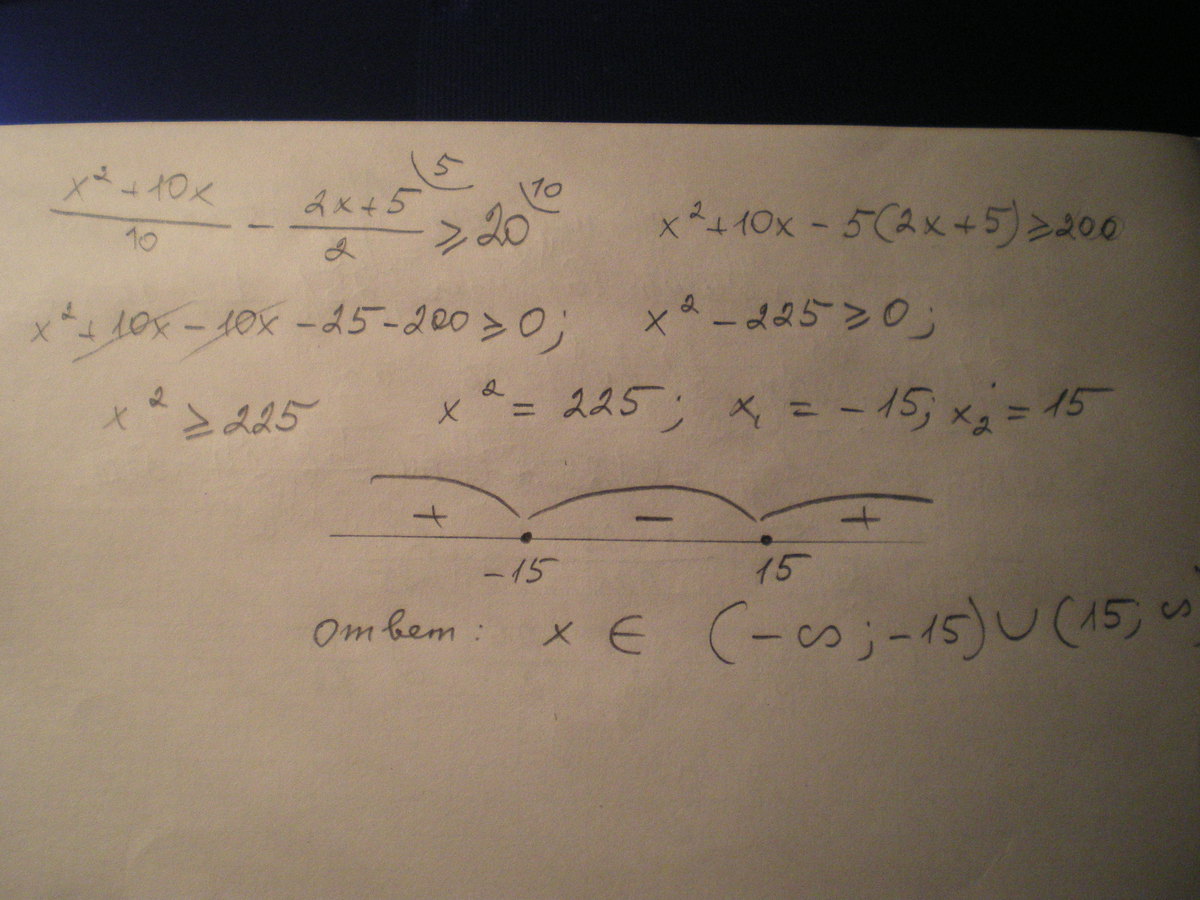 (x² + 10x)/10 - (2x + 5)/2 ⁵ ≥ 20 ¹⁰ x² + 10x - 5(2x + 5) ≥ 200
x² + 10x - 10x - 25 - 200 ≥ 0; x² - 225 ≥ 0;
x² ≥ 225 x² = 225; x₁ = -15; x₂ = 15
+ - +
-15 15
ответ: x ∈ (-∞; -15) ∪ (15; ∞)